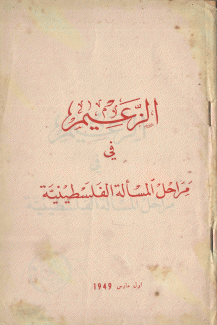 الزَّعيم
في
مَراحل المسألة الفلسطينيَّة
اول مارس 1949